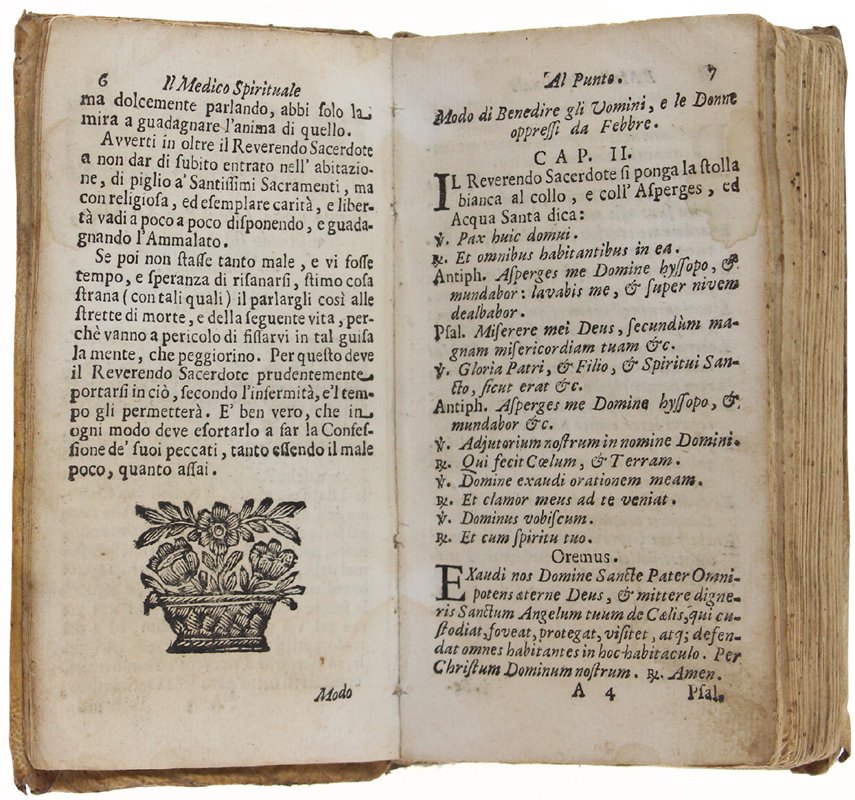 6 Il Medico Spirituale
ma dolcemente parlando, abbi ſolo la
mira a guadagnare l'anima di quello.
Avverti in oltre il Reverendo Sacerdote
a non dar di ſubito entrato nell' abitazio-
ne, di piglio a' Santiſſimi Sacramenti, ma
con religioſa, ed eſemplare carità, e liber-
tà vadi a poco a poco diſponendo, e guada-
gnando l'Ammalato.
Se poi non ſtaſſe tanto male, e vi foſſe
tempo, e ſperanza di riſanarſi, ſtimo coſa
ſtrana (con tali quali) il parlargli così alle
ſtrette di morte, e della ſeguente vita, per-
chè vanno a pericolo di fiſſarvi in tal guiſa
la mente, che peggiorino. Per queſto deve
il Reverendo Sacerdote prudentemente
portarſi in ciò, ſecondo l'infermità, e'l tem-
po gli permetterà. E' ben vero, che in
ogni modo deve eſortarlo a far la Confeſ-
ſione de' ſuoi peccati, tanto eſſendo il male
poco, quanto aſſai.
Modo
Al Punto. 7
Modo di Benedire gli Uomini, e le Donne
oppreſſi da Febbre.
CAP. II.
IL Reverendo Sacerdote ſi ponga la ſtolla
bianca al collo, e coll' Aſperges, ed
Acqua Santa dica:
℣. Pax huic domui.
℟. Et omnibus habitantibus in ea.
Antiph. Aſperges me Domine hyſſopo, &
mundabor: lavabis me, & ſuper nivem
dealbabor.
Pſal. Miſerere mei Deus, ſecundùm ma-
gnam miſericordiam tuam &c.
℣. Gloria Patri, & Filio, & Spiritui San-
cto, ſicut erat &c.
Antiph. Aſperges me Domine hyſſopo, &
mundabor &c.
℣. Adjutorium noſtrum in nomine Domini.
℟. Qui fecit Cœlum, & Terram.
℣. Domine exaudi orationem meam.
℟. Et clamor meus ad te veniat.
℣. Dominus vobiſcum.
℟. Et cum ſpiritu tuo.
Oremus.
EXaudi nos Domine Sancte Pater Omni-
potens æterne Deus, & mittere digne-
ris Sanctum Angelum tuum de Cœlis, qui cu-
ſtodiat, foveat, protegat, viſitet, atq; defen-
dat omnes habitantes in hoc habitaculo. Per
Chriſtum Dominum noſtrum. ℟. Amen.
A 4 Pſal.